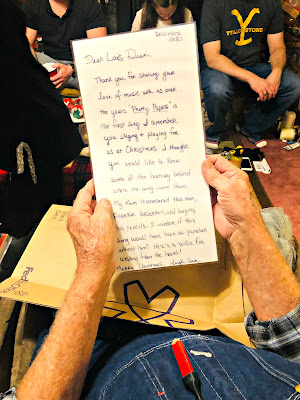 December
2021
Dear Lois Dean,
Thank you for sharing your
love of music with us over
the years. "Pretty Papers" is
the first song I remember
you singing + playing for
us at Christmas. I thought
you would like to know
some of the history behind
where the song came from.
My Mum remembered this man,
Frankie and buying
his pencils. I wonder if this
song would have been so popular
without him? Here's to Willie for
writing from the heart!
Merry Christmas,
YELLOWSTONE
FedEx